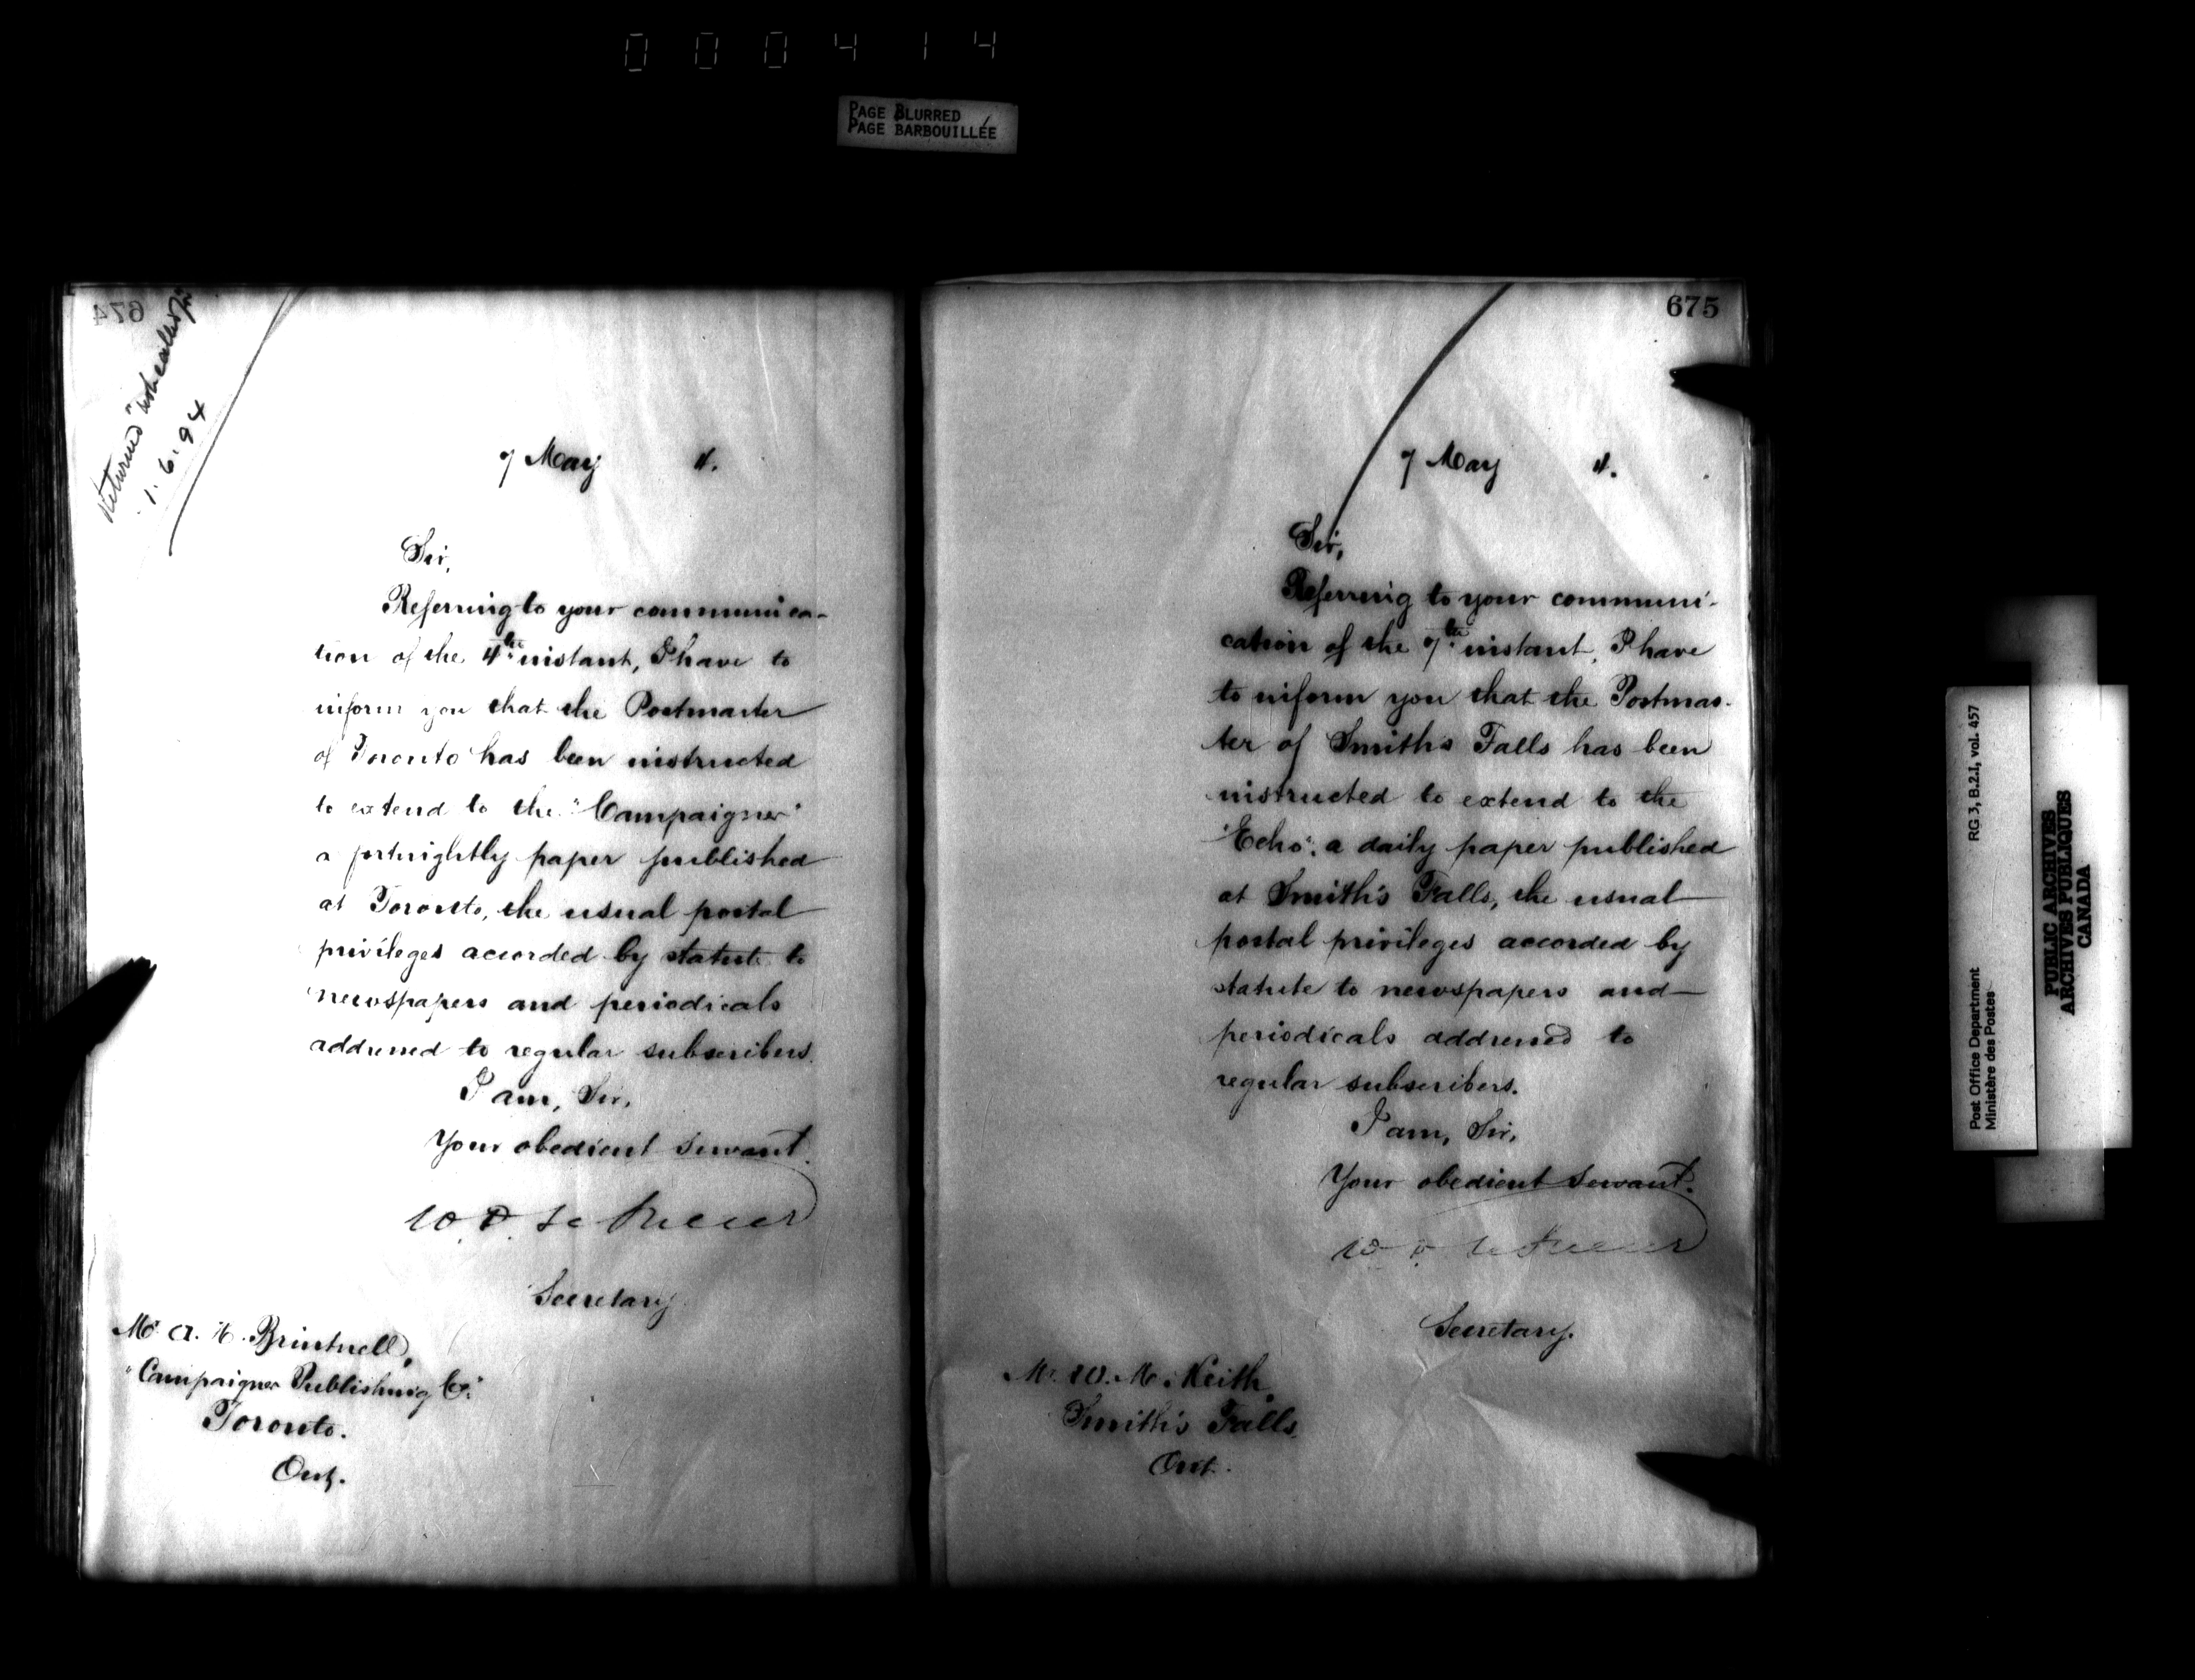 000414
PAGE BLURRED
PAGE BARBOUILLÉE
674
Returned "not called for"
1.6.94
7 May 4.
Sir,
Referring to your communica-
tion of the 4th instant, I have to
inform you that the Postmaster
of Toronto has been instructed
to extend to the "Campaigner"
a fortnightly paper published
at Toronto, the usual postal
privileges accorded by statute to
newspapers and periodicals
addressed to regular subscribers.
I am, Sir,
Your obedient servant.
W. D. Le Sueur
Secretary
Mr. A. H. Brintnell,
"Campaigner Publishing Co."
Toronto.
Ont.
675
7 May 4.
Sir,
Referring to your communi-
cation of the 7th instant, I have
to inform you that the Postmas-
ter of Smith's Falls has been
instructed to extend to the
"Echo", a daily paper published
at Smith's Falls, the usual
postal privileges accorded by
statute to newspapers and
periodicals addressed to
regular subscribers.
I am, Sir,
Your obedient servant.
W. D. Le Sueur
Secretary.
Mr. W. M. Keith,
Smith's Falls,
Ont.
Post Office Department RG 3, B.2.I, vol. 457
Ministère des Postes
PUBLIC ARCHIVES
ARCHIVES PUBLIQUES
CANADA